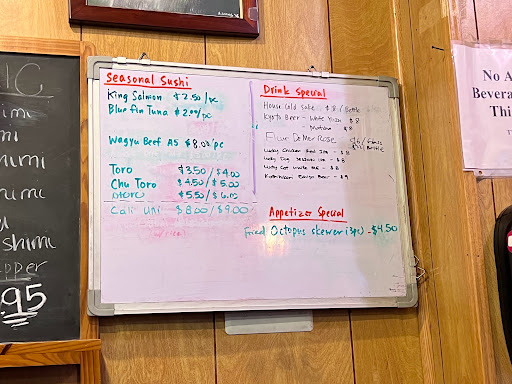 IC
imi
ni
imi
nimi
u
shimi
pper
.95
Seasonal Sushi
King Salmon $2.50/pc
Blue fin Tuna $2.00/pc
Wagyu Beef A5 $8.00/pc
Toro $3.50/$4.00
Chu Toro $4.50/$5.00
Otoro $5.50/$6.00
Cali Uni $8.00/$9.00
Drink Special
House Cold Sake - $8/Bottle
Kyoto Beer - White Yuzu $8
Matcha $8
De Mer Rose $6/Glass
Bottle
Lucky Chicken Red IPA - $8
Lucky Dog Session IPA - $8
Lucky Cat White Ale - $8
Beer - $9
Appetizer Special
Fried Octopus skewer (3pc) - $4.50
No A
Bevera
Thi